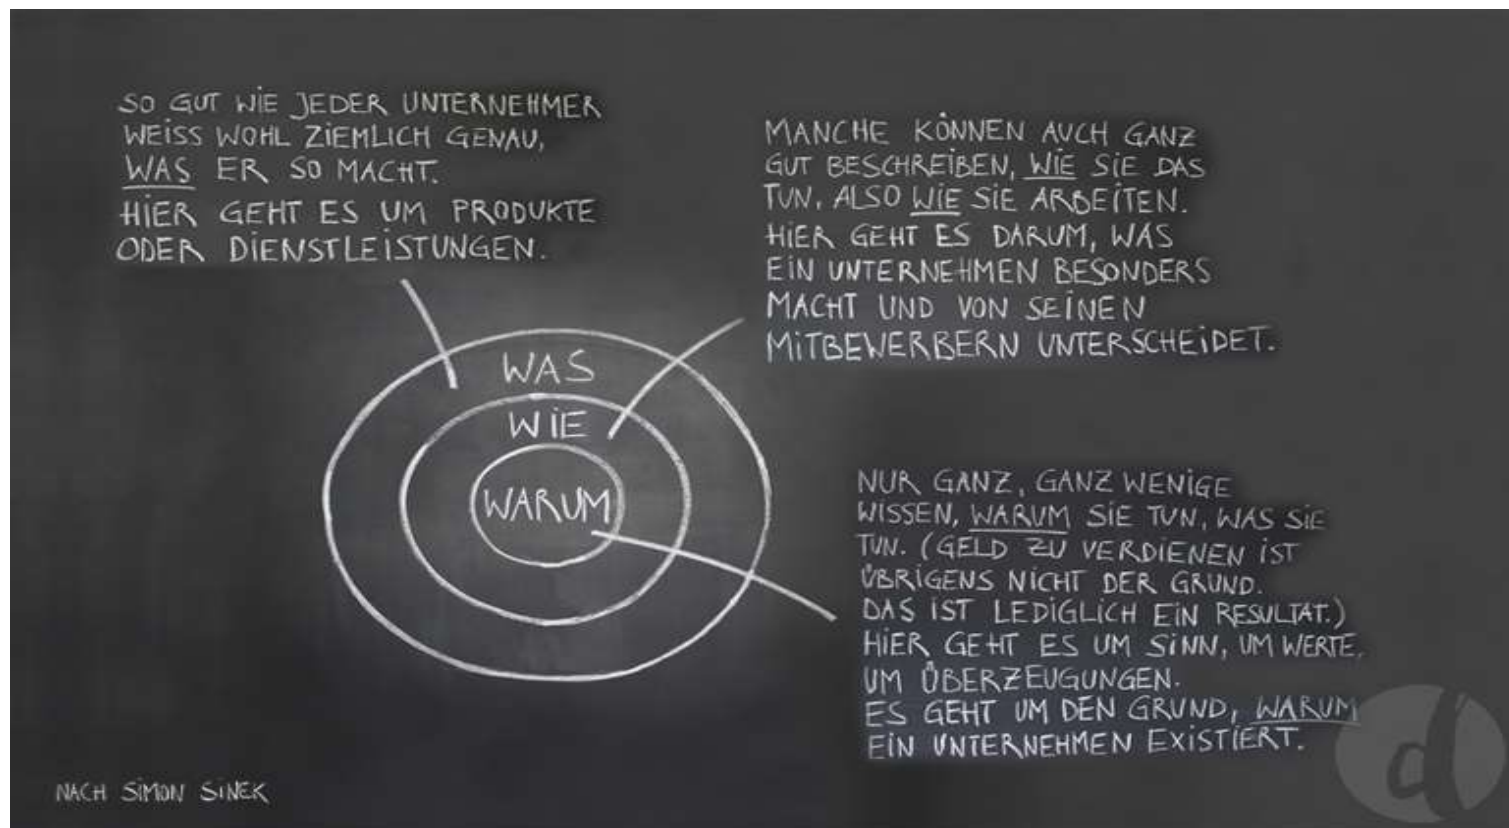 SO GUT WIE JEDER UNTERNEHMER
WEISS WOHL ZIEMLICH GENAU,
WAS ER SO MACHT.
HIER GEHT ES UM PRODUKTE
ODER DIENSTLEISTUNGEN.
MANCHE KÖNNEN AUCH GANZ
GUT BESCHREIBEN, WIE SIE DAS
TUN, ALSO WIE SIE ARBEITEN.
HIER GEHT ES DARUM, WAS
EIN UNTERNEHMEN BESONDERS
MACHT UND VON SEINEN
MITBEWERBERN UNTERSCHEIDET.
WAS
WIE
WARUM
NUR GANZ, GANZ WENIGE
WISSEN, WARUM SIE TUN, WAS SIE
TUN. (GELD ZU VERDIENEN IST
ÜBRIGENS NICHT DER GRUND.
DAS IST LEDIGLICH EIN RESULTAT.)
HIER GEHT ES UM SINN, UM WERTE,
UM ÜBERZEUGUNGEN.
ES GEHT UM DEN GRUND, WARUM
EIN UNTERNEHMEN EXISTIERT.
NACH SIMON SINEK
d